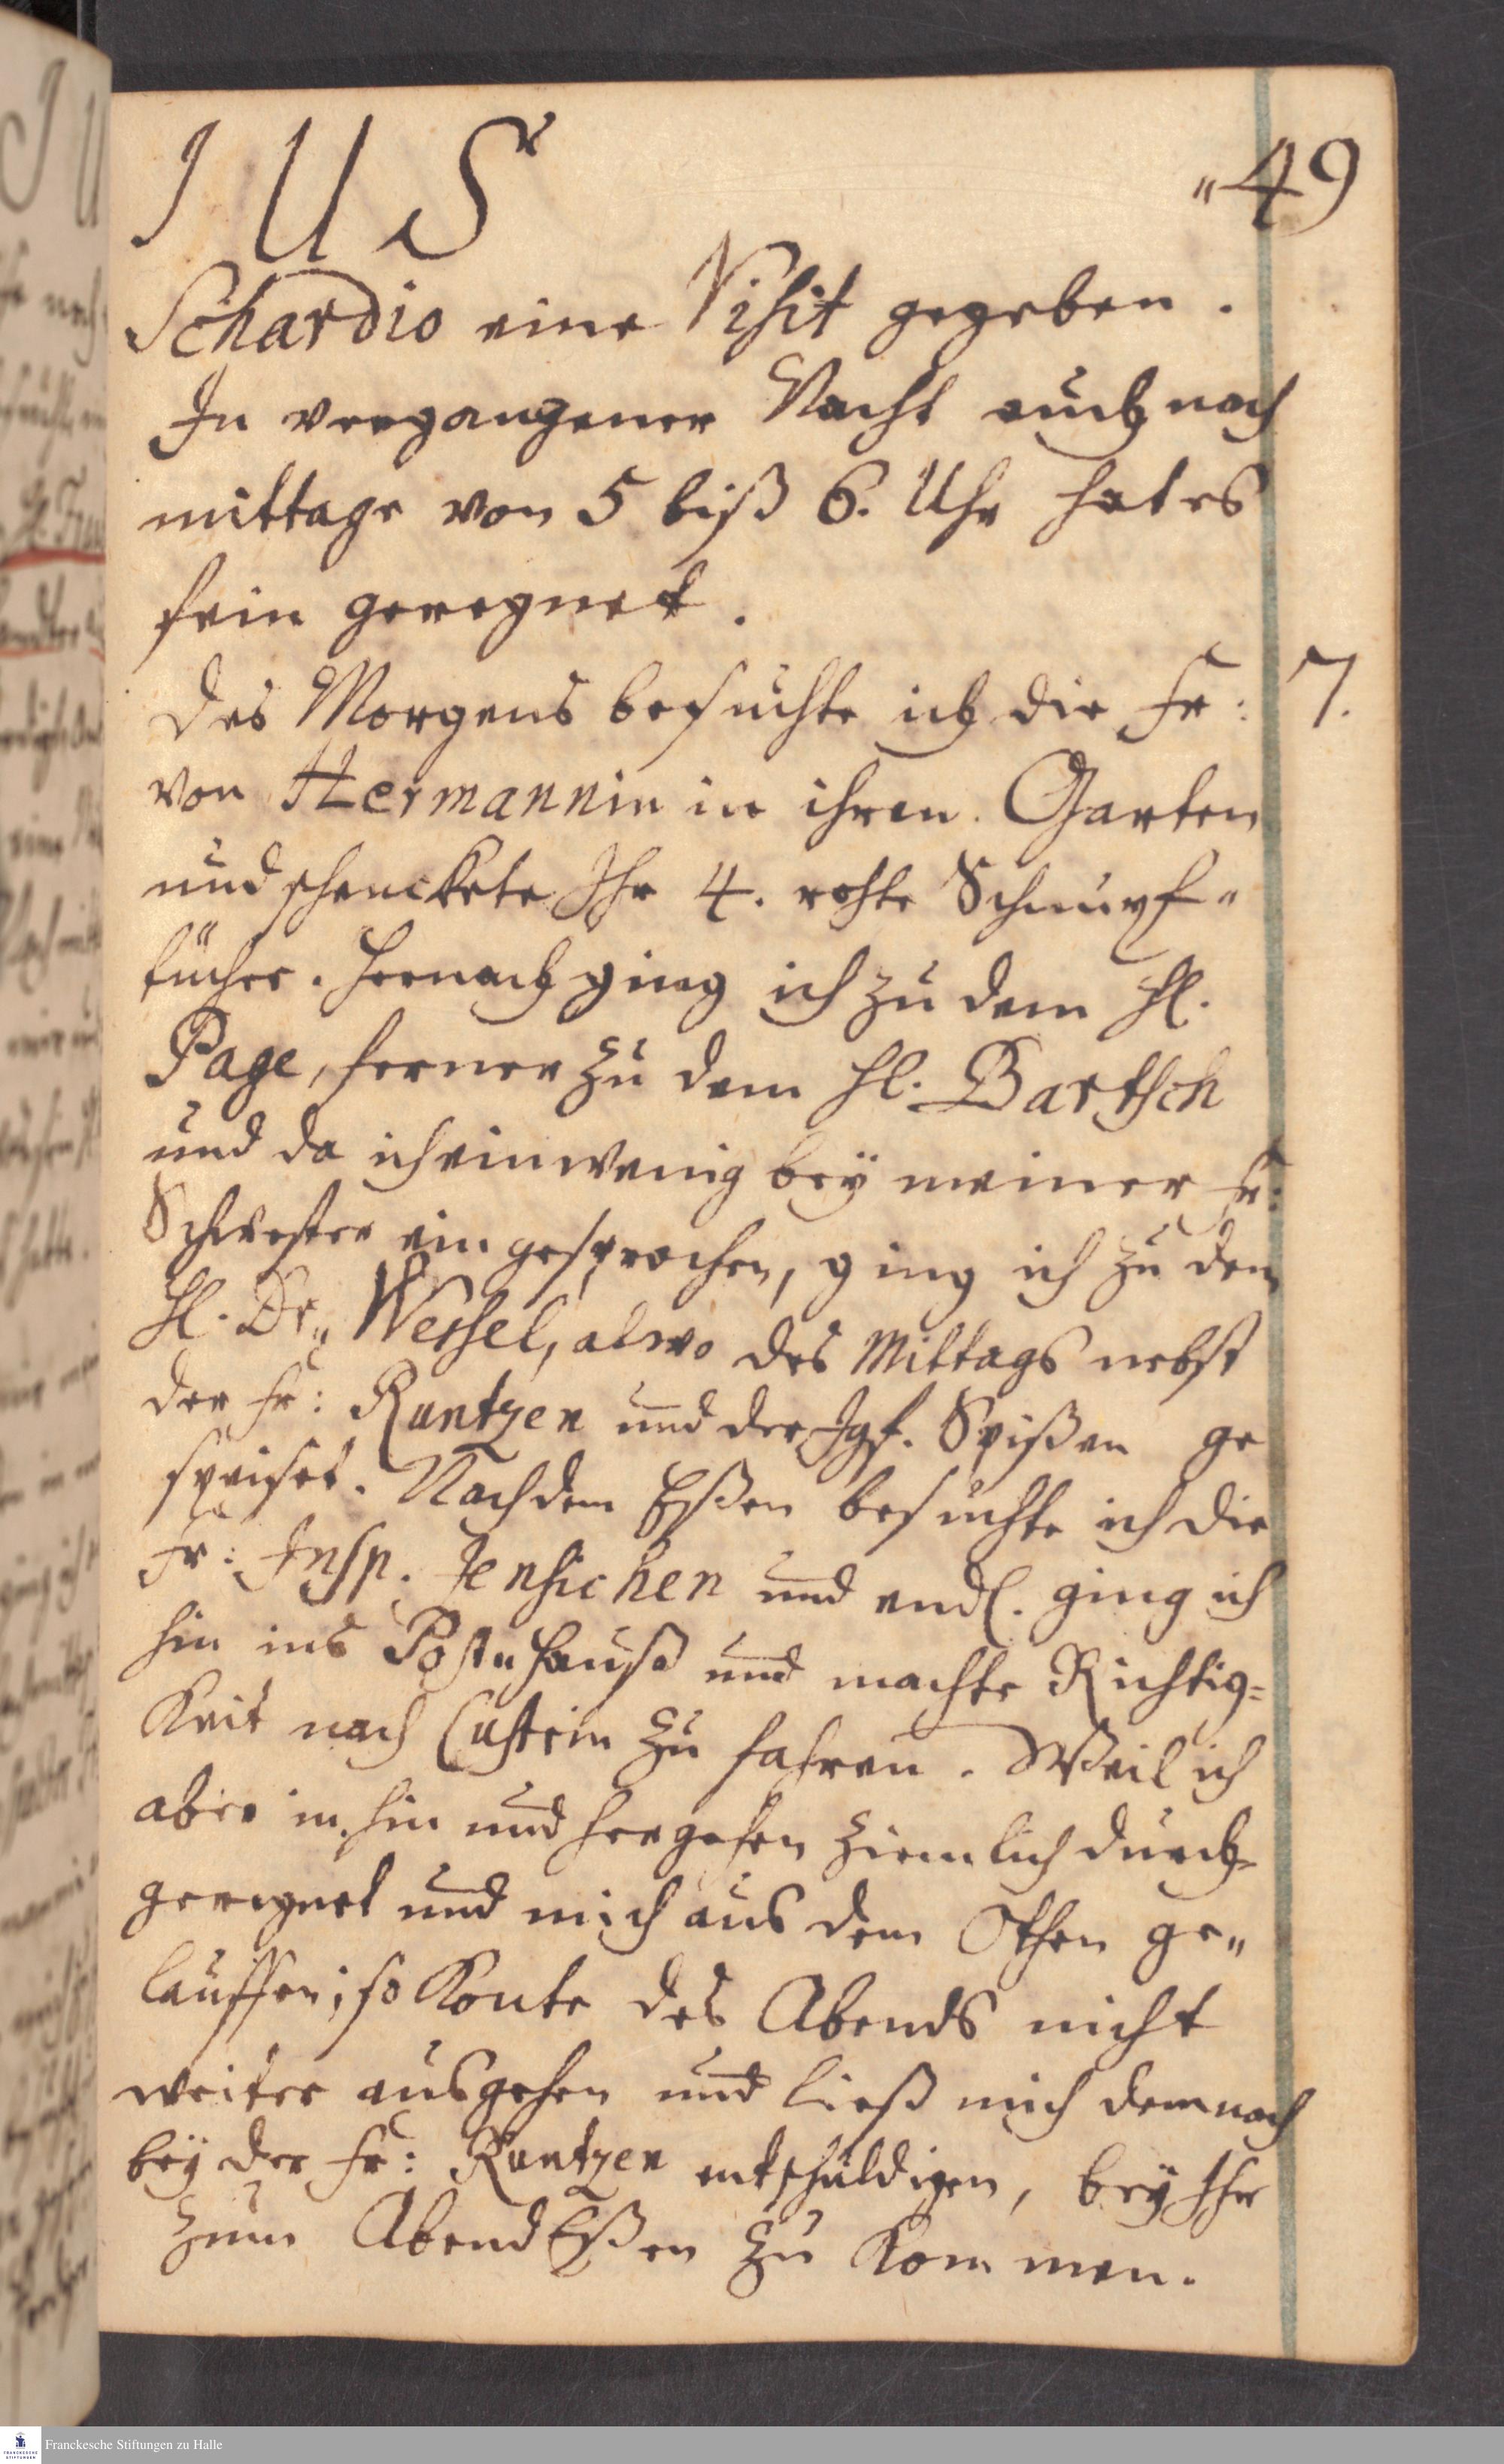 I U S
„49
Schardio eine Visit gegeben.
In vergangener Nacht auch nach
mittage von 5 biß 6. Uhr hat es
fein geregnet.
Des Morgens besuchte ich die Fr: 7.
von Hermannin in ihren Garten
und schenckete Ihr 4. rohte Schnupf„
tücher. Hernach ging ich zu dem Hl.
Page, ferner zu dem Hl. Bartsch
und da ich ein wenig beÿ meiner Fr:
Schwester ein gesprochen, ging ich zu dem
Hl. Dr„ Wessel, alwo des Mittags nebst
der Fr: Runtzen und der Jgf. Spißen ge
speiset. Nach dem Eßen besuchte ich die
Fr: Insp. Jensichen und endl. ging ich
hin ins Post„hauß und machte Richtig=
keit nach Custrin zu fahren. Weil ich
aber im hin und hergehen ziemlich durch
geregnet und mich aus dem Othen ge„
lauffen; so konte des Abends nicht
weiter ausgehen und ließ mich demnach
beÿ der Fr: Runtzen entschuldigen, beÿ Ihr
zum Abend Eßen zu kommen.
Franckesche Stiftungen zu Halle
FRANCKESCHE
STIFTUNGEN